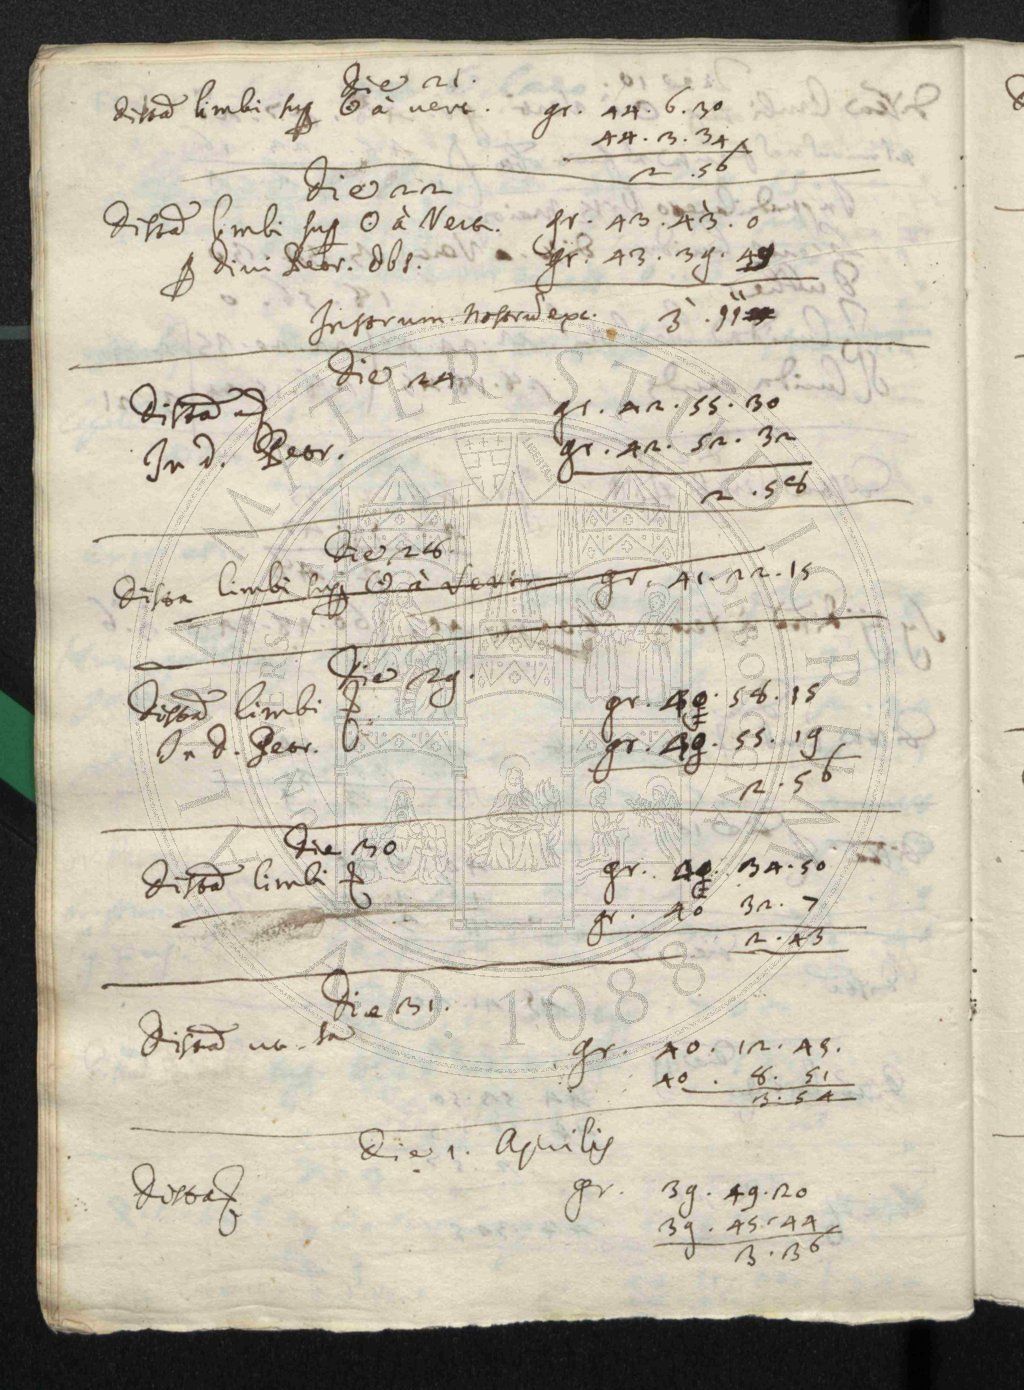 Die 21.
Dista limbi sup ☉ à vert. gr. 44. 6. 30
44. 3. 34
2. 56
Die 22
Dista limbi sup ☉ à Vert. gr. 43. 43. 0
p Divi Petr. Obs. gr. 43. 39. 49
Instrum. nostrū exc. 3. 11
Die 24
Dista gr. 42. 55. 30
In D. Petr. gr. 42. 52. 32
2. 58
Die 28
Dista limbi sup ☉ à Vert. gr. 41. 22. 15
Die 29.
Dista limbi gr. 40. 58. 15
In D. Petr. gr. 40. 55. 19
2. 56
Die 30
Dista limbi gr. 40. 34. 50
gr. 40 32. 7
2. 43
Die 31.
Dista ut. sa gr. 40. 12. 45.
40. 8. 51
3. 54
Die 1. Aprilis
Dista gr. 39. 49. 20
39. 45. 44
3. 36
ALMA MATER STUDIORUM
A.D. 1088